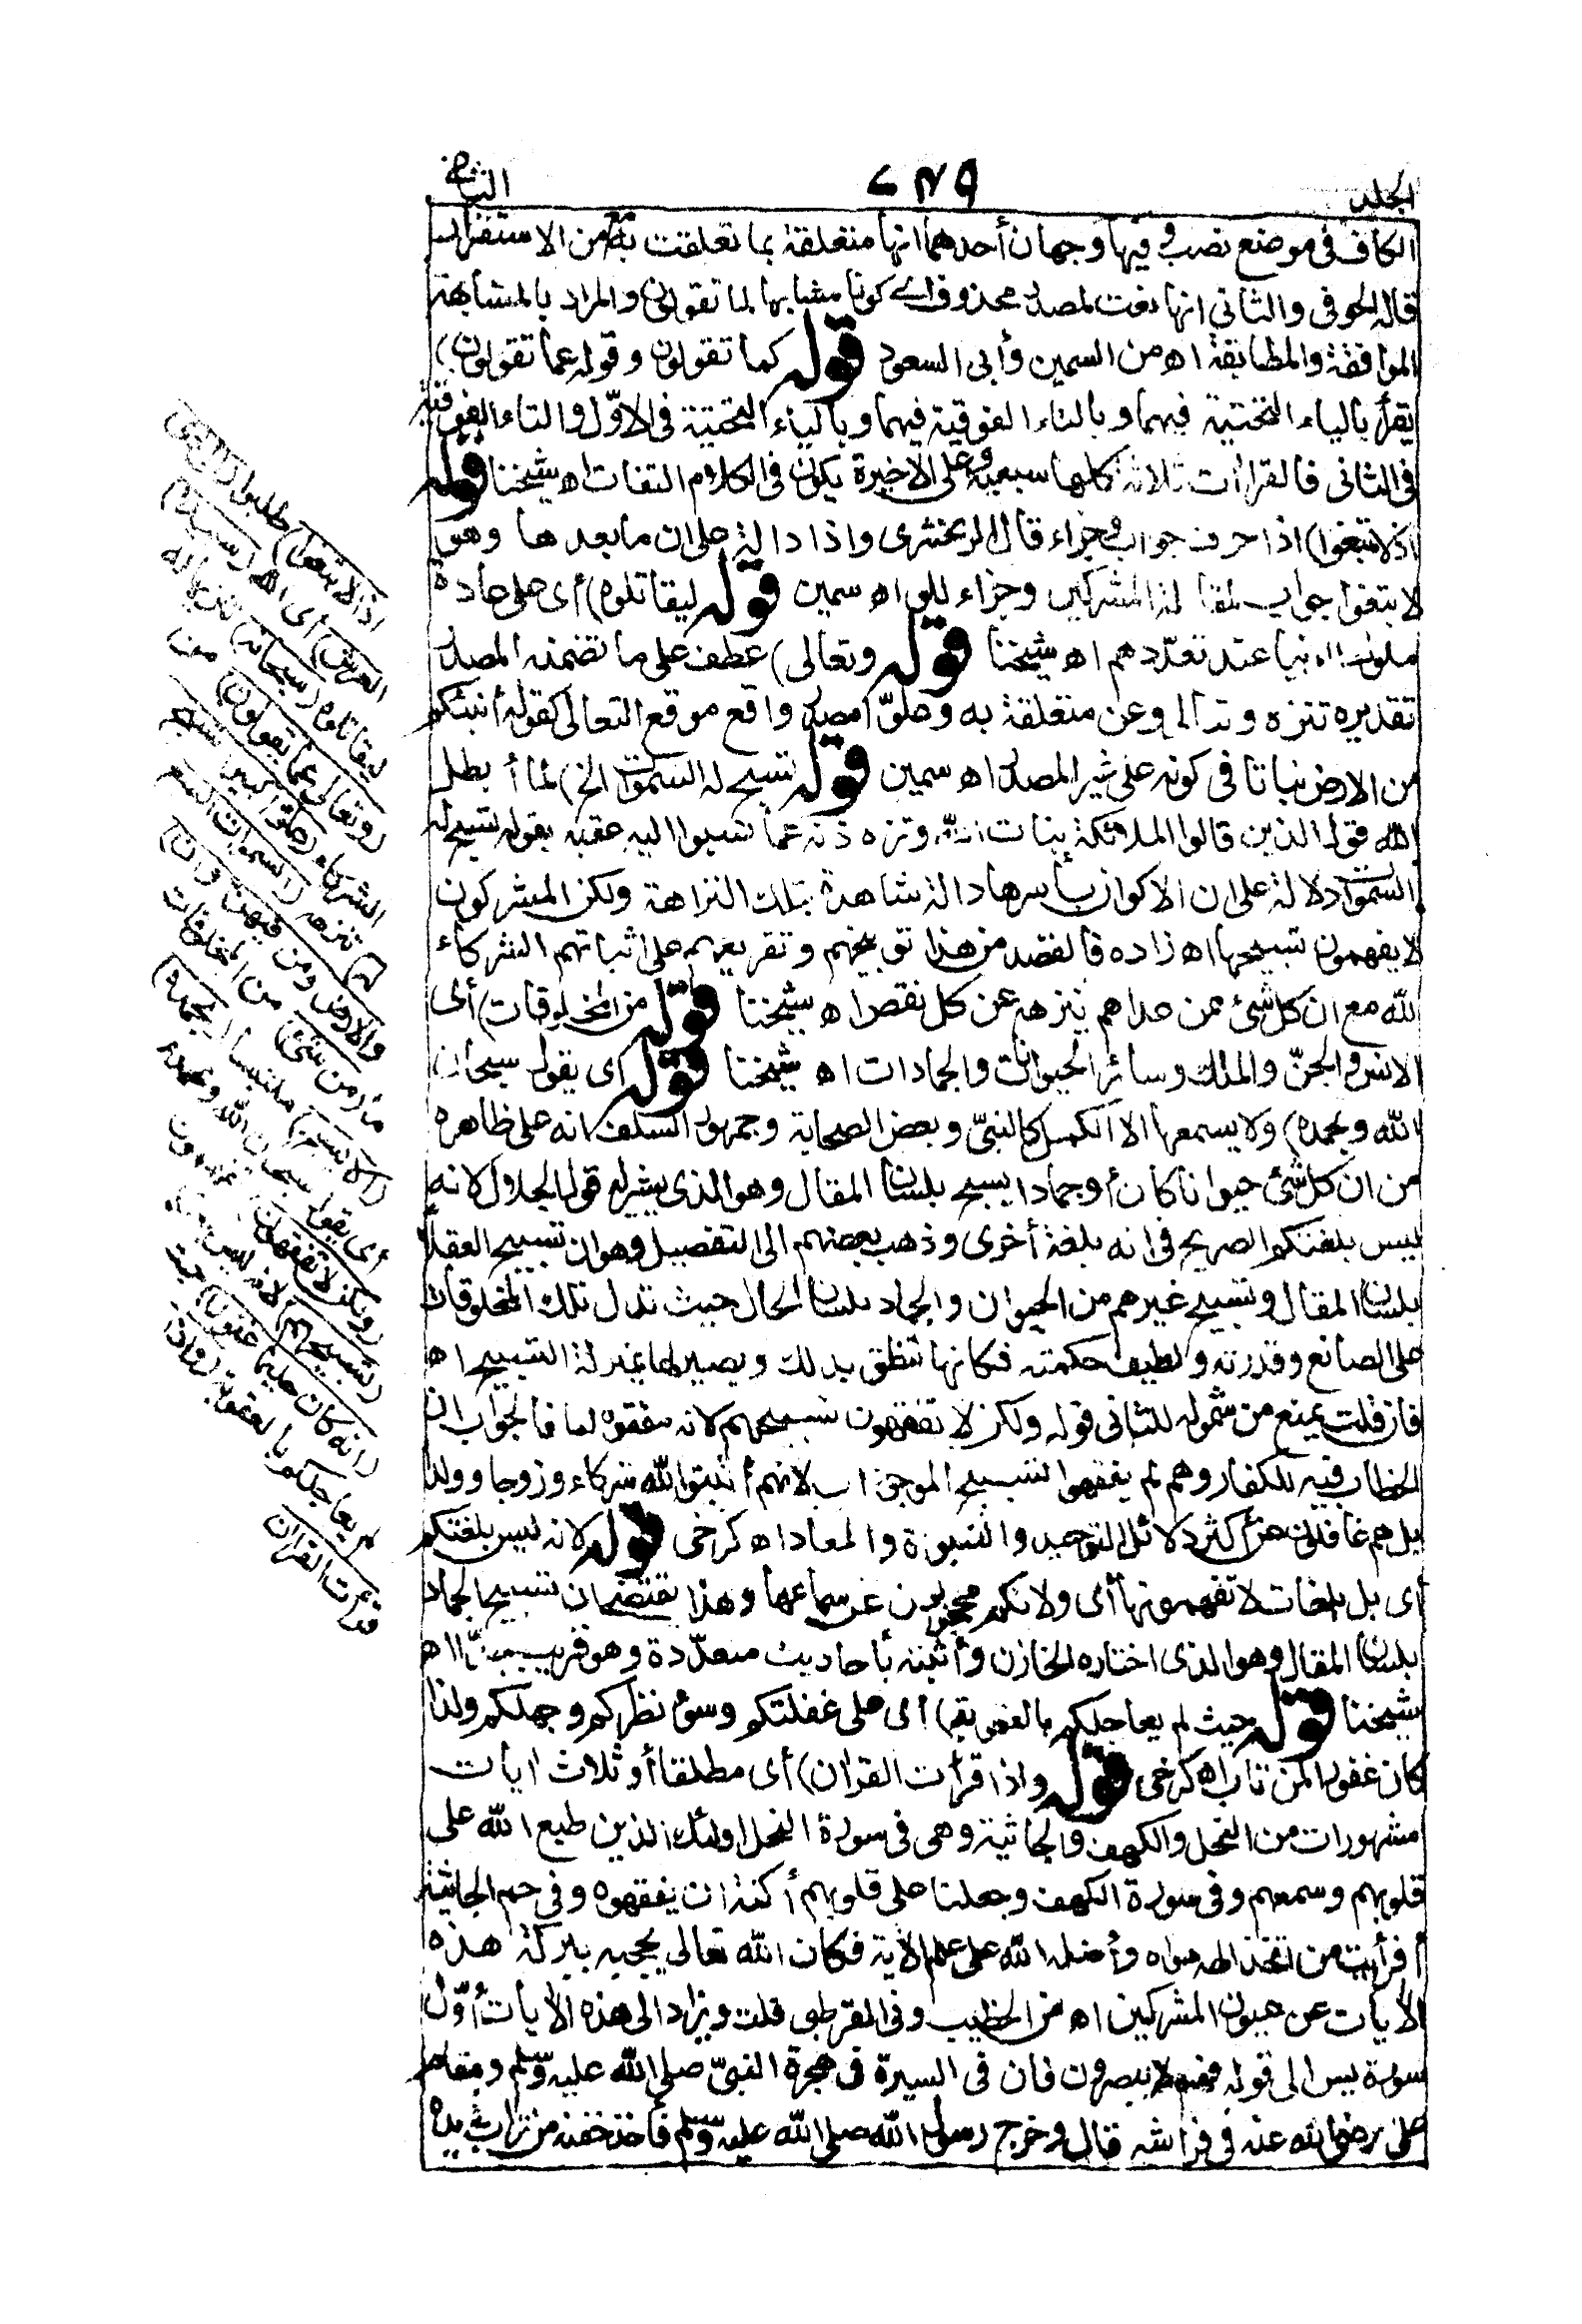 الجلد ٦٢٩ الثانى
الكاف فى موضع نصب و فيها وجهان أحدهما انها متعلقة بما تعلقت به مع من الاستقرار
قاله الحوفى والثانى انها نعت لمصدر محذوف اى كونا مشابها لما تقولون والمراد بالمشابهة
الموافقة والمطابقة اه من السمين وأبى السعود قوله كما تقولون وقوله عما تقولون)
يقرأ بالياء التحتية فيهما وبالتاء الفوقية فيهما وبالياء التحتية فى الاوّل والتاء الفوقية
فى الثانى فالقراآت ثلاثة كلها سبعية وعلى الاخيرة يكون فى الكلام التفات اه شيخنا قوله
اذا لابتغوا) اذا حرف جواب وجزاء قال الزمخشرى واذا دالة على ان ما بعدها وهو
لابتغوا جواب لمقالة المشركين وجزاء للو اه سمين قوله ليقاتلوه) أى على عادة
ملوك الدنيا عند تعدّدهم اه شيخنا قوله وتعالى) عطف على ما تضمنه المصدر
تقديره تنزه وتعالى وعن متعلقة به وعلوّا مصدر واقع موقع التعالى كقوله أنبتكم
من الارض نباتا فى كونه على غير المصدر اه سمين قوله تسبح له السموات الخ) لما أبطل
الله قول الذين قالوا الملائكة بنات الله ونزه ذاته عما نسبوا اليه عقبه بقوله تسبح له
السموات دلالة على ان الاكوان بأسرها دالة شاهدة بتلك النزاهة ولكن المشركون
لا يفهمون تسبيحها اه زاده فالقصد من هذا توبيخهم وتقريعهم على اثباتهم الشركاء
لله مع ان كل شئ ممن عداهم ينزهه عن كل نقص اه شيخنا قوله من المخلوقات) أى
الانس والجنّ والملك وسائر الحيوانات والجمادات اه شيخنا قوله اى يقول سبحان
الله وبحمده) ولا يسمعها الا الكمل كالنبىّ وبعض الصحابة وجمهور السلف انه على ظاهره
من ان كل شئ حيوانا كان أو جمادا يسبح بلسان المقال وهو الذى يشير له قول الجلال لانه
ليس بلغتكم الصريح فى انه بلغة أخرى وذهب بعضهم الى التفصيل وهو ان تسبيح العقلاء
بلسان المقال وتسبيح غيرهم من الحيوان والجماد بلسان الحال حيث تدل تلك المخلوقات
على الصانع وقدرته ولطيف حكمته فكانها تنطق بذلك ويصير لها بمنزلة التسبيح اه
فان قلت يمنع من شموله للثانى قوله ولكن لا تفقهون تسبيحهم لانه مفقوه لنا فالجواب ان
الخطاب فيه للكفار وهم لم يفقهوا تسبيح الموجودات لانهم أثبتوا لله شركاء وزوجا وولدا
بل هم غافلون عن أكثر دلائل التوحيد والنبوة والمعاد اه كرخى قوله لانه ليس بلغتكم
أى بل بلغات لا تفهمونها أى ولانكم محجوبون عن سماعها وهذا يقتضى ان تسبيح الجماد
بلسان المقال وهو الذى اختاره الخازن وأثبته بأحاديث متعدّدة وهو قريب جدّا اه
شيخنا قوله حيث لم يعاجلكم بالعقوبة) أى على غفلتكم وسوء نظركم وجهلكم ولذا
كان غفورا لمن تاب اه كرخى قوله واذا قرأت القرآن) أى مطلقا أو ثلاث آيات
مشهورات من النحل والكهف والجاثية وهى فى سورة النحل اولئك الذين طبع الله على
قلوبهم وسمعهم وفى سورة الكهف وجعلنا على قلوبهم أكنة ان يفقهوه وفى حم الجاثية
أفرأيت من اتخذ الهه هواه وأضله الله على علم الآية فكان الله تعالى يحجبه ببركة هذه
الآيات عن عيون المشركين اه من الخطيب وفى القرطبى قلت ويزاد الى هذه الآيات أوّل
سورة يس الى قوله فهم لا يبصرون فان فى السيرة فى هجرة النبىّ صلى الله عليه وسلم ومقام
على رضى الله عنه فى فراشه قال وخرج رسول الله صلى الله عليه وسلم فأخذ حفنة من تراب فى يده
اذا لابتغوا) طلبوا (الى ذى
العرش) أى الله (سبيلا)
ليقاتلوه (سبحانه) تنزيها له
(وتعالى عما يقولون) من
الشركاء (علوّا كبيرا تسبح
له) تنزهه (السموات السبع
والارض ومن فيهن وان)
ما (من شئ) من المخلوقات
(الا يسبح) ملتبسا (بحمده)
أى يقول سبحان الله وبحمده
(ولكن لا تفقهون) تفهمون
(تسبيحهم) لانه ليس بلغتكم
(انه كان حليما غفورا) حيث
لم يعاجلكم بالعقوبة (واذا
قرأت القرآن